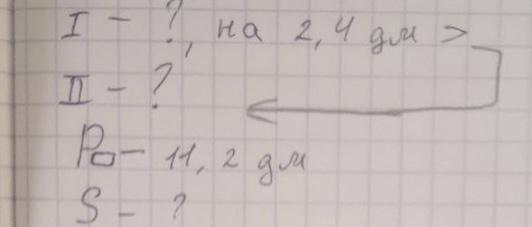 I - ?, на 2,4 дм >
II - ?
P▭ - 11,2 дм
S - ?